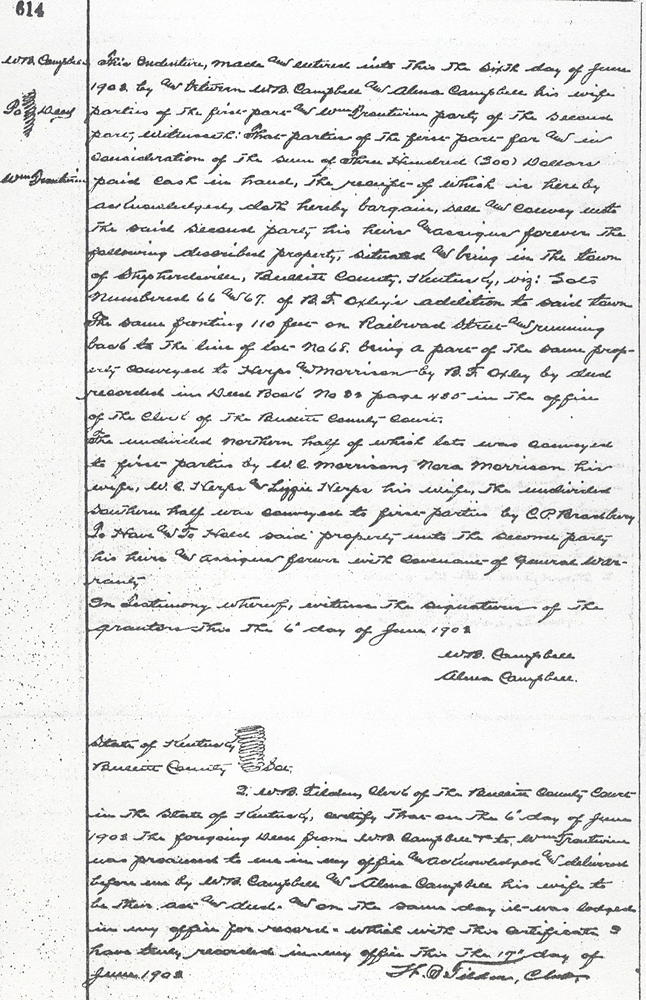 614
W.B. Campbell
To Deed
Wm Troutwine
This Indenture, made & entered into this the sixth day of June
1902 by & between W.B. Campbell & Alma Campbell his wife
parties of the first part & Wm Troutwine party of the second
part, Witnesseth: That parties of the first part for & in
consideration of the sum of Three Hundred (300) Dollars
paid cash in hand, the receipt of which is hereby
acknowledged, doth hereby bargain, sell & convey unto
the said second party his heirs & assigns forever the
following described property, situated & being in the town
of Shepherdsville, Bullitt County, Kentucky, viz: Lots
Numbered 66 & 67. of B.F. Oxley's addition to said town
The same fronting 110 feet on Railroad Street & running
back to the line of lot No 68. being a part of the same prop-
erty conveyed to Herps & Morrison by B.F. Oxley by deed
recorded in Deed Book No page 485 in the office
of the Clerk of the Bullitt County Court.
The undivided Northern half of which lots was conveyed
to first parties by W.C. Morrison, Nora Morrison his
wife, W.C. Herps & Lizzie Herps his wife, the undivided
Southern half was conveyed to first parties by C.P. Bradbury
To Have & To Hold said property unto the second party
his heirs & assigns forever with Covenant of General War-
ranty
In Testimony whereof, witness the signatures of the
grantors this the 6" day of June 1902
W.B. Campbell
Alma Campbell.
State of Kentucky
Bullitt County Sct.
I. W.B. Tilden, Clerk of the Bullitt County Court
in the State of Kentucky, certify that on the 6" day of June
1902 the foregoing Deed from W.B. Campbell &c to Wm Troutwine
was produced to me in my office & acknowledged & delivered
before me by W.B. Campbell & Alma Campbell his wife to
be their act & deed. & on the same day it was lodged
in my office for record. which with this certificate I
have truly recorded in my office this the 17" day of
June 1902 Tilden, Clerk